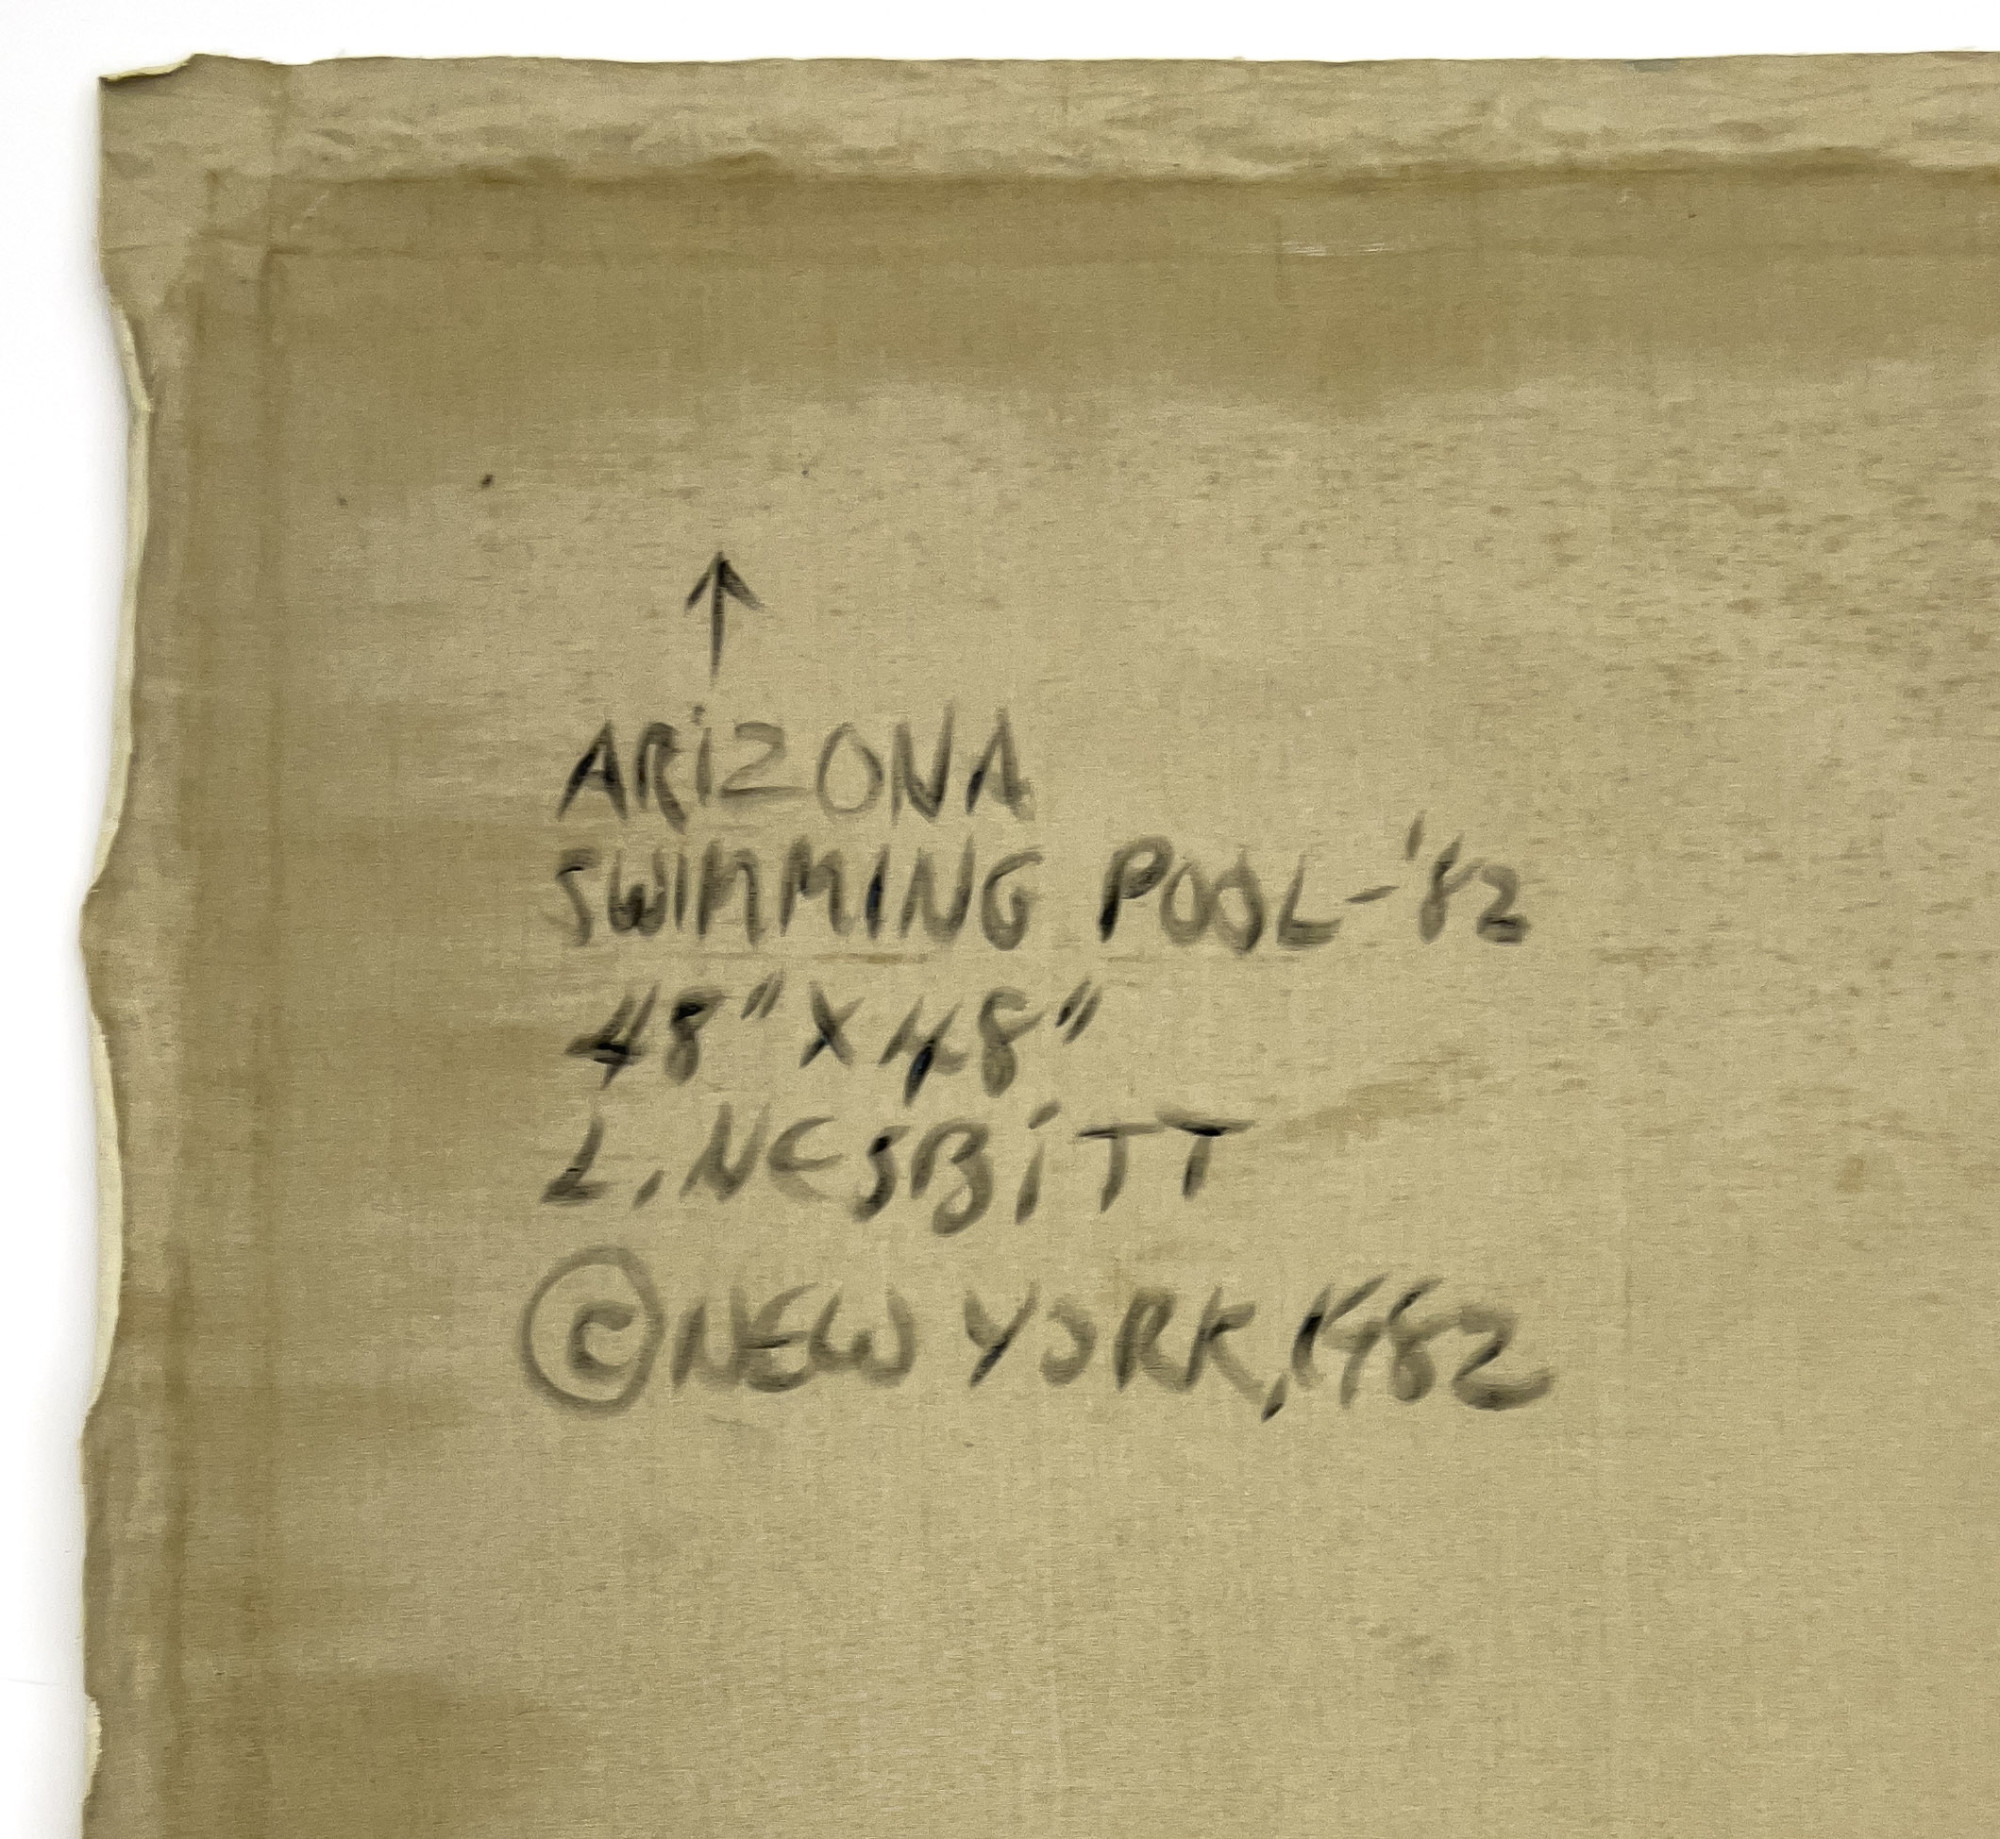 ↑
ARiZONA
SWIMMING POOL-'82
48" X 48"
L. NESBiTT
©NEW YORK, 1982